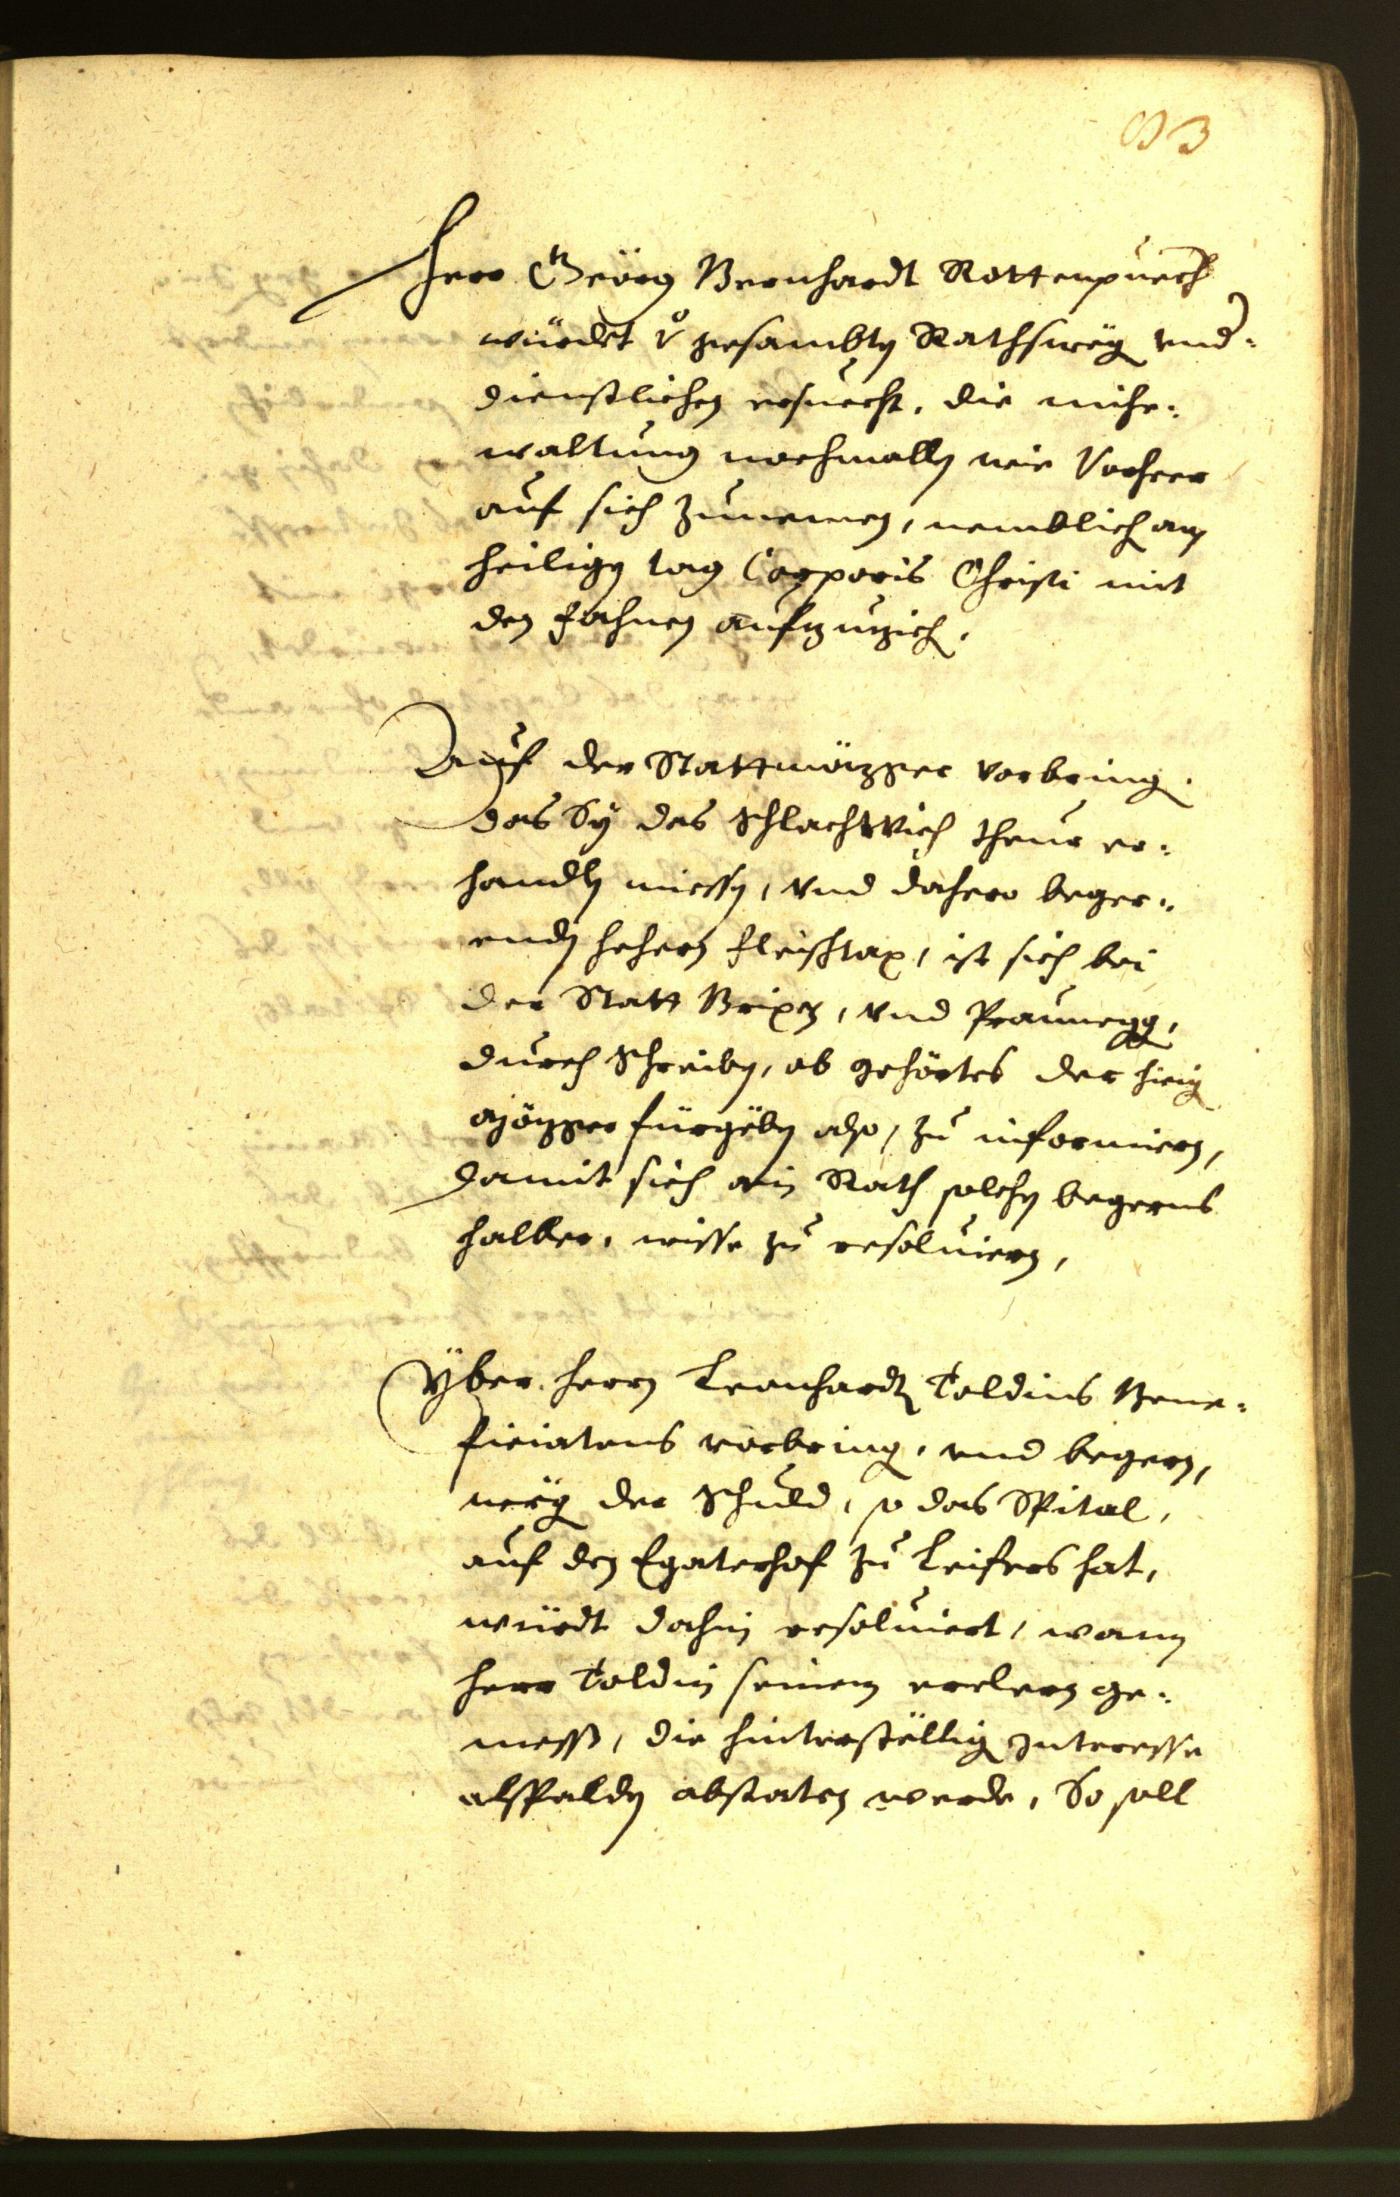 83
Herr Geörg Bernhardt Rottenpuech
würdet v̊ gesambten Rathsweg vnd¬
dienstlichen ersuecht, die mihe¬
waltung nochmallen wie Vorheer
auf sich zunemen, nemblich am
heiligen tag Corporis Christi mit
den Fahnen aufzuziech.
Auf der Stattmözger vorbring,
das Sy das SchlachtVich theur er¬
handlen miessen, vnd dahero beger¬
enden hehern fleischtax, ist sich bei
der Statt Brixen, vnd Praunegg,
durch Schreiben, ob gehörtes der hieig
Mözger fürgeben also, zu informiern,
damit sich ain Rath solchen begerns
halber, wisse zu resoluiern,
Yber herrn Leonhardten Toldins Bene¬
ficiatens vorbring, vnd begern,
weg der Schuld, so das Spital,
auf den Egaterhof zu Leifers hat,
würdt dahin resoluiert, wann
herr Toldin seinem erclern ge¬
mess, die hinterstellig Interesse
alspalden abstaten werde, So soll